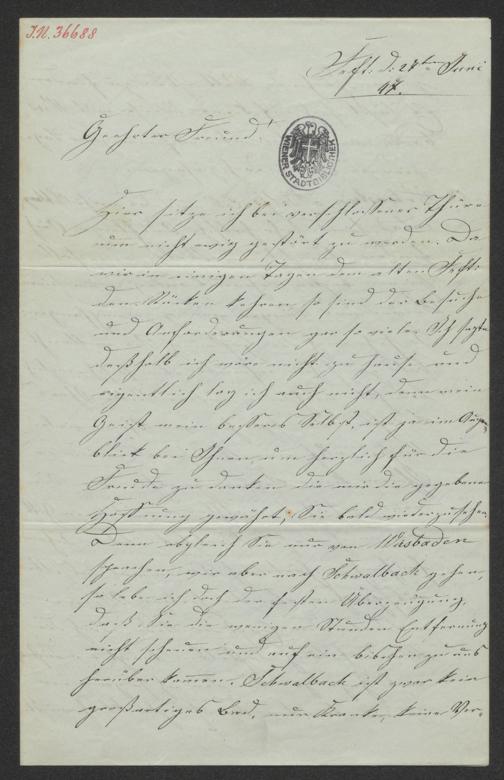 I.N. 36688
Frft. d. 24ten Juni
47.
Geehrter Freund!
WIENER STADTBIBLIOTHEK
Hier sitze ich bei verschlossener Thüre
um nicht ewig gestört zu werden. Da
wir in einigen Tagen dem alten
den Rücken kehren so sind der Besuche
und Anforderungen gar so viele. Ich sagte
deßhalb ich wäre nicht zu Hause und
eigentlich log ich auch nicht, denn mein
Geist mein besseres Selbst, ist ja im Augen-
blick bei Ihnen, um herzlich für die
Freude zu danken die mir die gegebene
Hoffnung gewährt, Sie bald wiederzusehen.
Denn obgleich Sie nur von Wisbaden
sprachen, wir aber nach Schwalbach gehen,
so lebe ich doch der festen Überzeugung,
daß Sie die wenigen Stunden Entfernung
nicht scheuen und auf ein bischen zu uns
herüber kommen. Schwalbach ist zwar kein
großartiges Bad, nur Kranke, keine Ver-